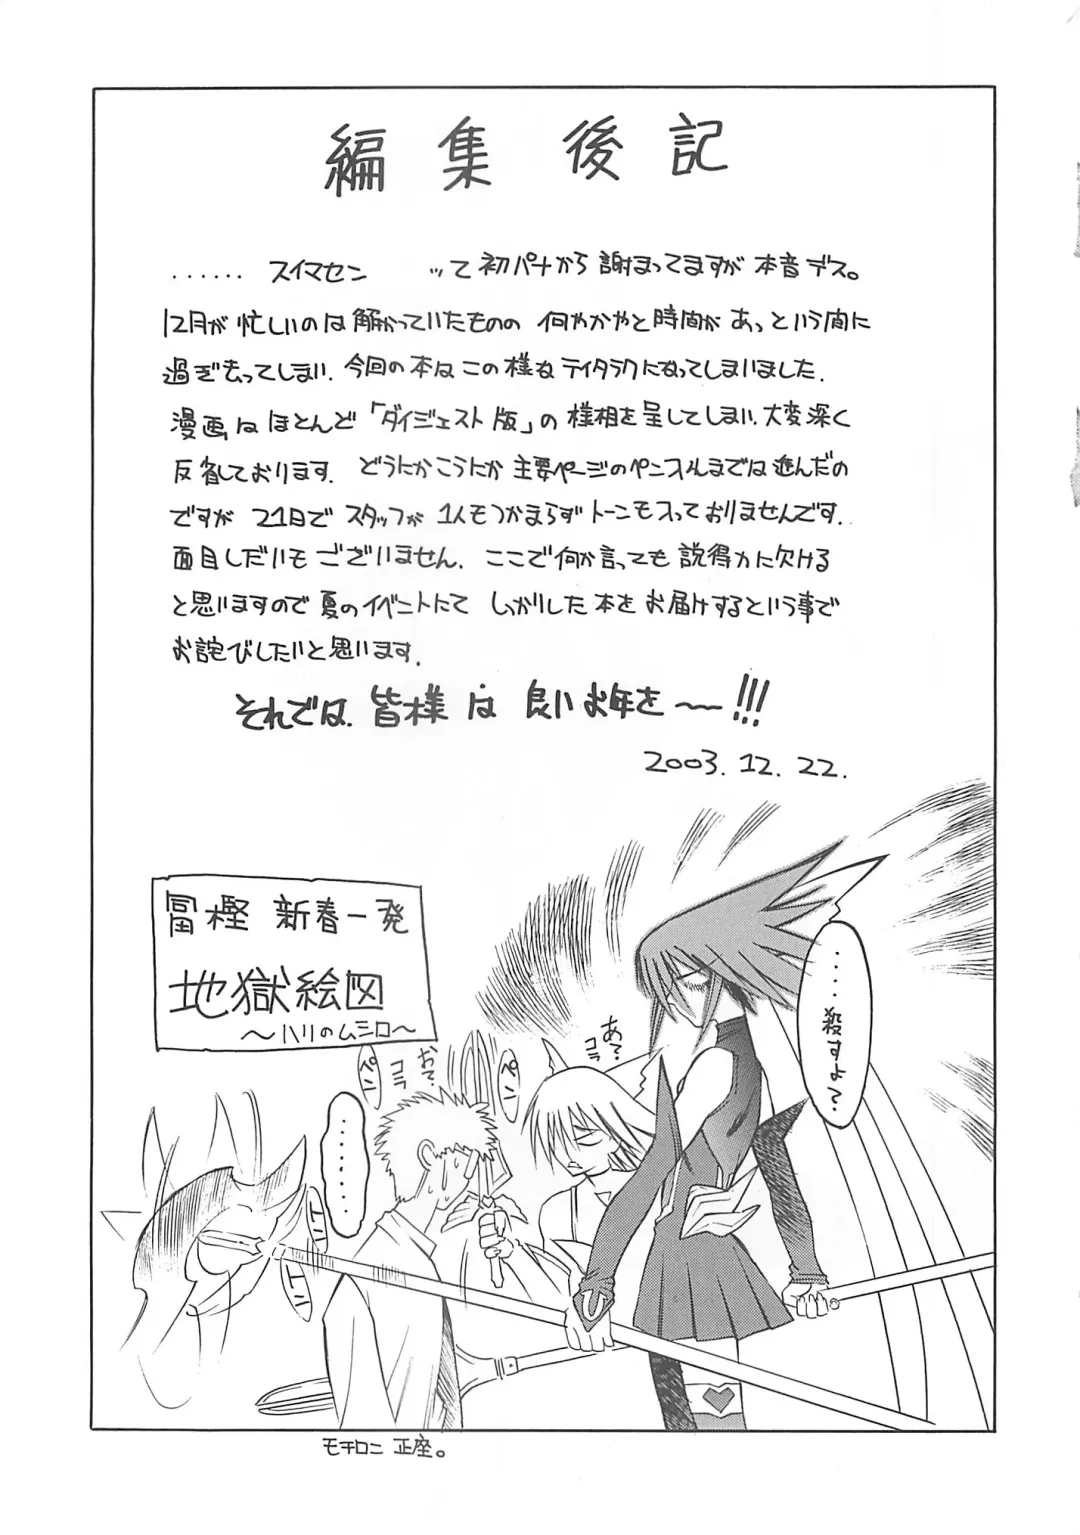 編集後記
...... スイマセン ッて初パナから謝まってますが本音デス。
12月が忙しいのは解かっていたものの何やかやと時間があっという間に
過ぎ去ってしまい.今回の本はこの様なテイタラクになってしまいました.
漫画はほとんど「ダイジェスト版」の様相を呈してしまい.大変深く
反省しております. どうにかこうにか主要ページのペンスルまでは進んだの
ですが21日でスタッフが1人もつかまらずトーンも入っておりませんです.
面目しだいもございません. ここで何か言っても説得力に欠ける
と思いますので夏のイベントにてしっかりした本をお届けするという事で
お詫びしたいと思います.
それでは.皆様は良いお年を〜!!!
2003.12.22.
冨樫 新春一発
地獄絵図
〜ハリのムシロ〜
....殺すよ?
あ?
コラ
ペン
お?
コラ
ペン
......
トン
トン
モチロン正座。